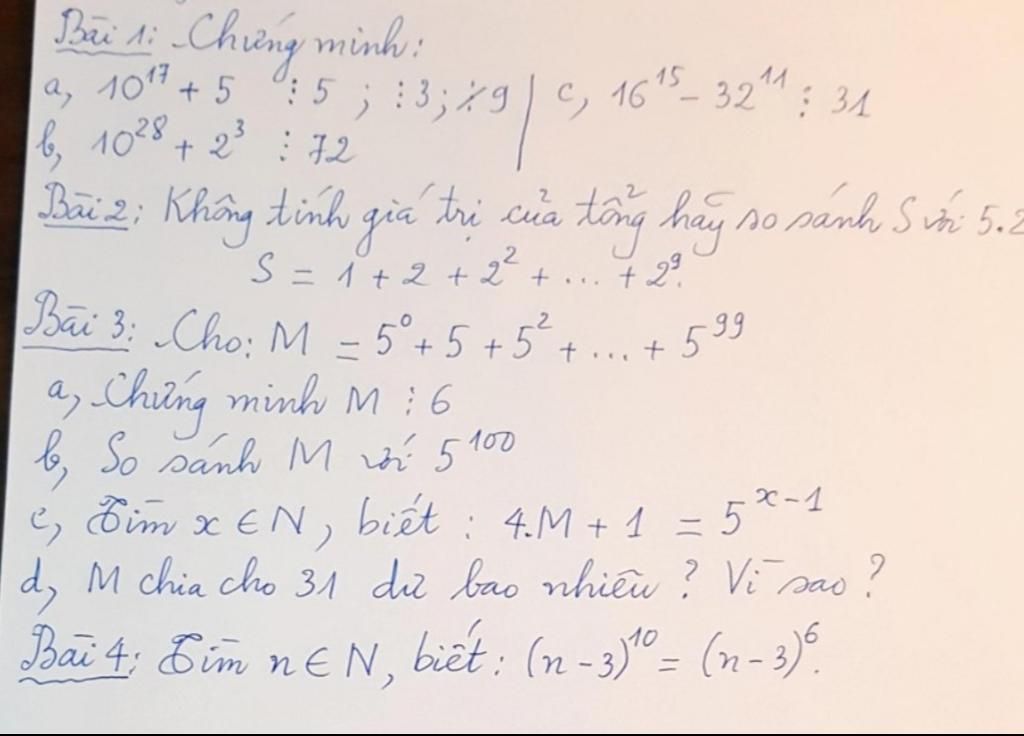 Bài 1: Chứng minh:
a, 10¹⁷ + 5 ⋮ 5 ; ⋮ 3 ; ⋮̸ 9 | c, 16¹⁵ - 32¹¹ ⋮ 31
b, 10²⁸ + 2³ ⋮ 72
Bài 2: Không tính giá trị của tổng hãy so sánh S với 5.2
S = 1 + 2 + 2² + ... + 2⁹.
Bài 3: Cho: M = 5⁰ + 5 + 5² + ... + 5⁹⁹
a, Chứng minh M ⋮ 6
b, So sánh M với 5¹⁰⁰
c, Tìm x ∈ N, biết : 4.M + 1 = 5ˣ⁻¹
d, M chia cho 31 dư bao nhiêu ? Vì sao ?
Bài 4: Tìm n ∈ N, biết : (n - 3)¹⁰ = (n - 3)⁶.